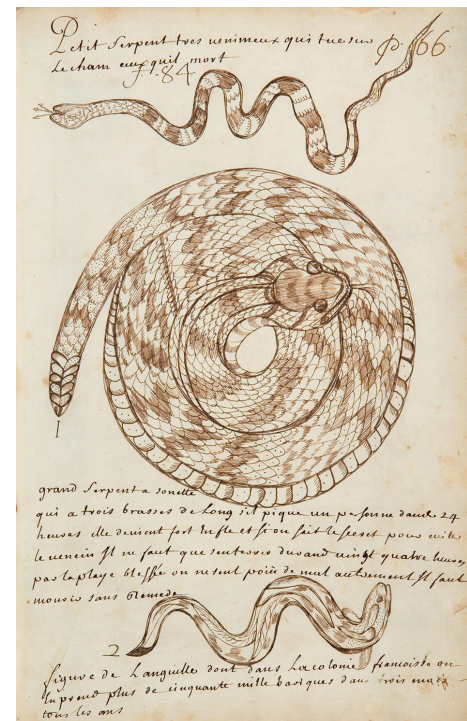 Petit Serpent tres venimeux qui tue sur
Le cham ceux quil mort
p. 66
f. 84
1
grand Serpent a sonette
qui a trois brasses de Long sil pique un personne dans 24
heures elle devient fort Enfle et si on sait le secret pour eviter
le venein Il ne faut que sentersser durand vingt quatre heures
par la playe blessée on ne sent poin de mal autrement Il faut
mourir sans Remede
2
figure de Languille dont dans La colonie francoisse on
En prend plus de cinquante mille bariques dans trois mois
tous les ans